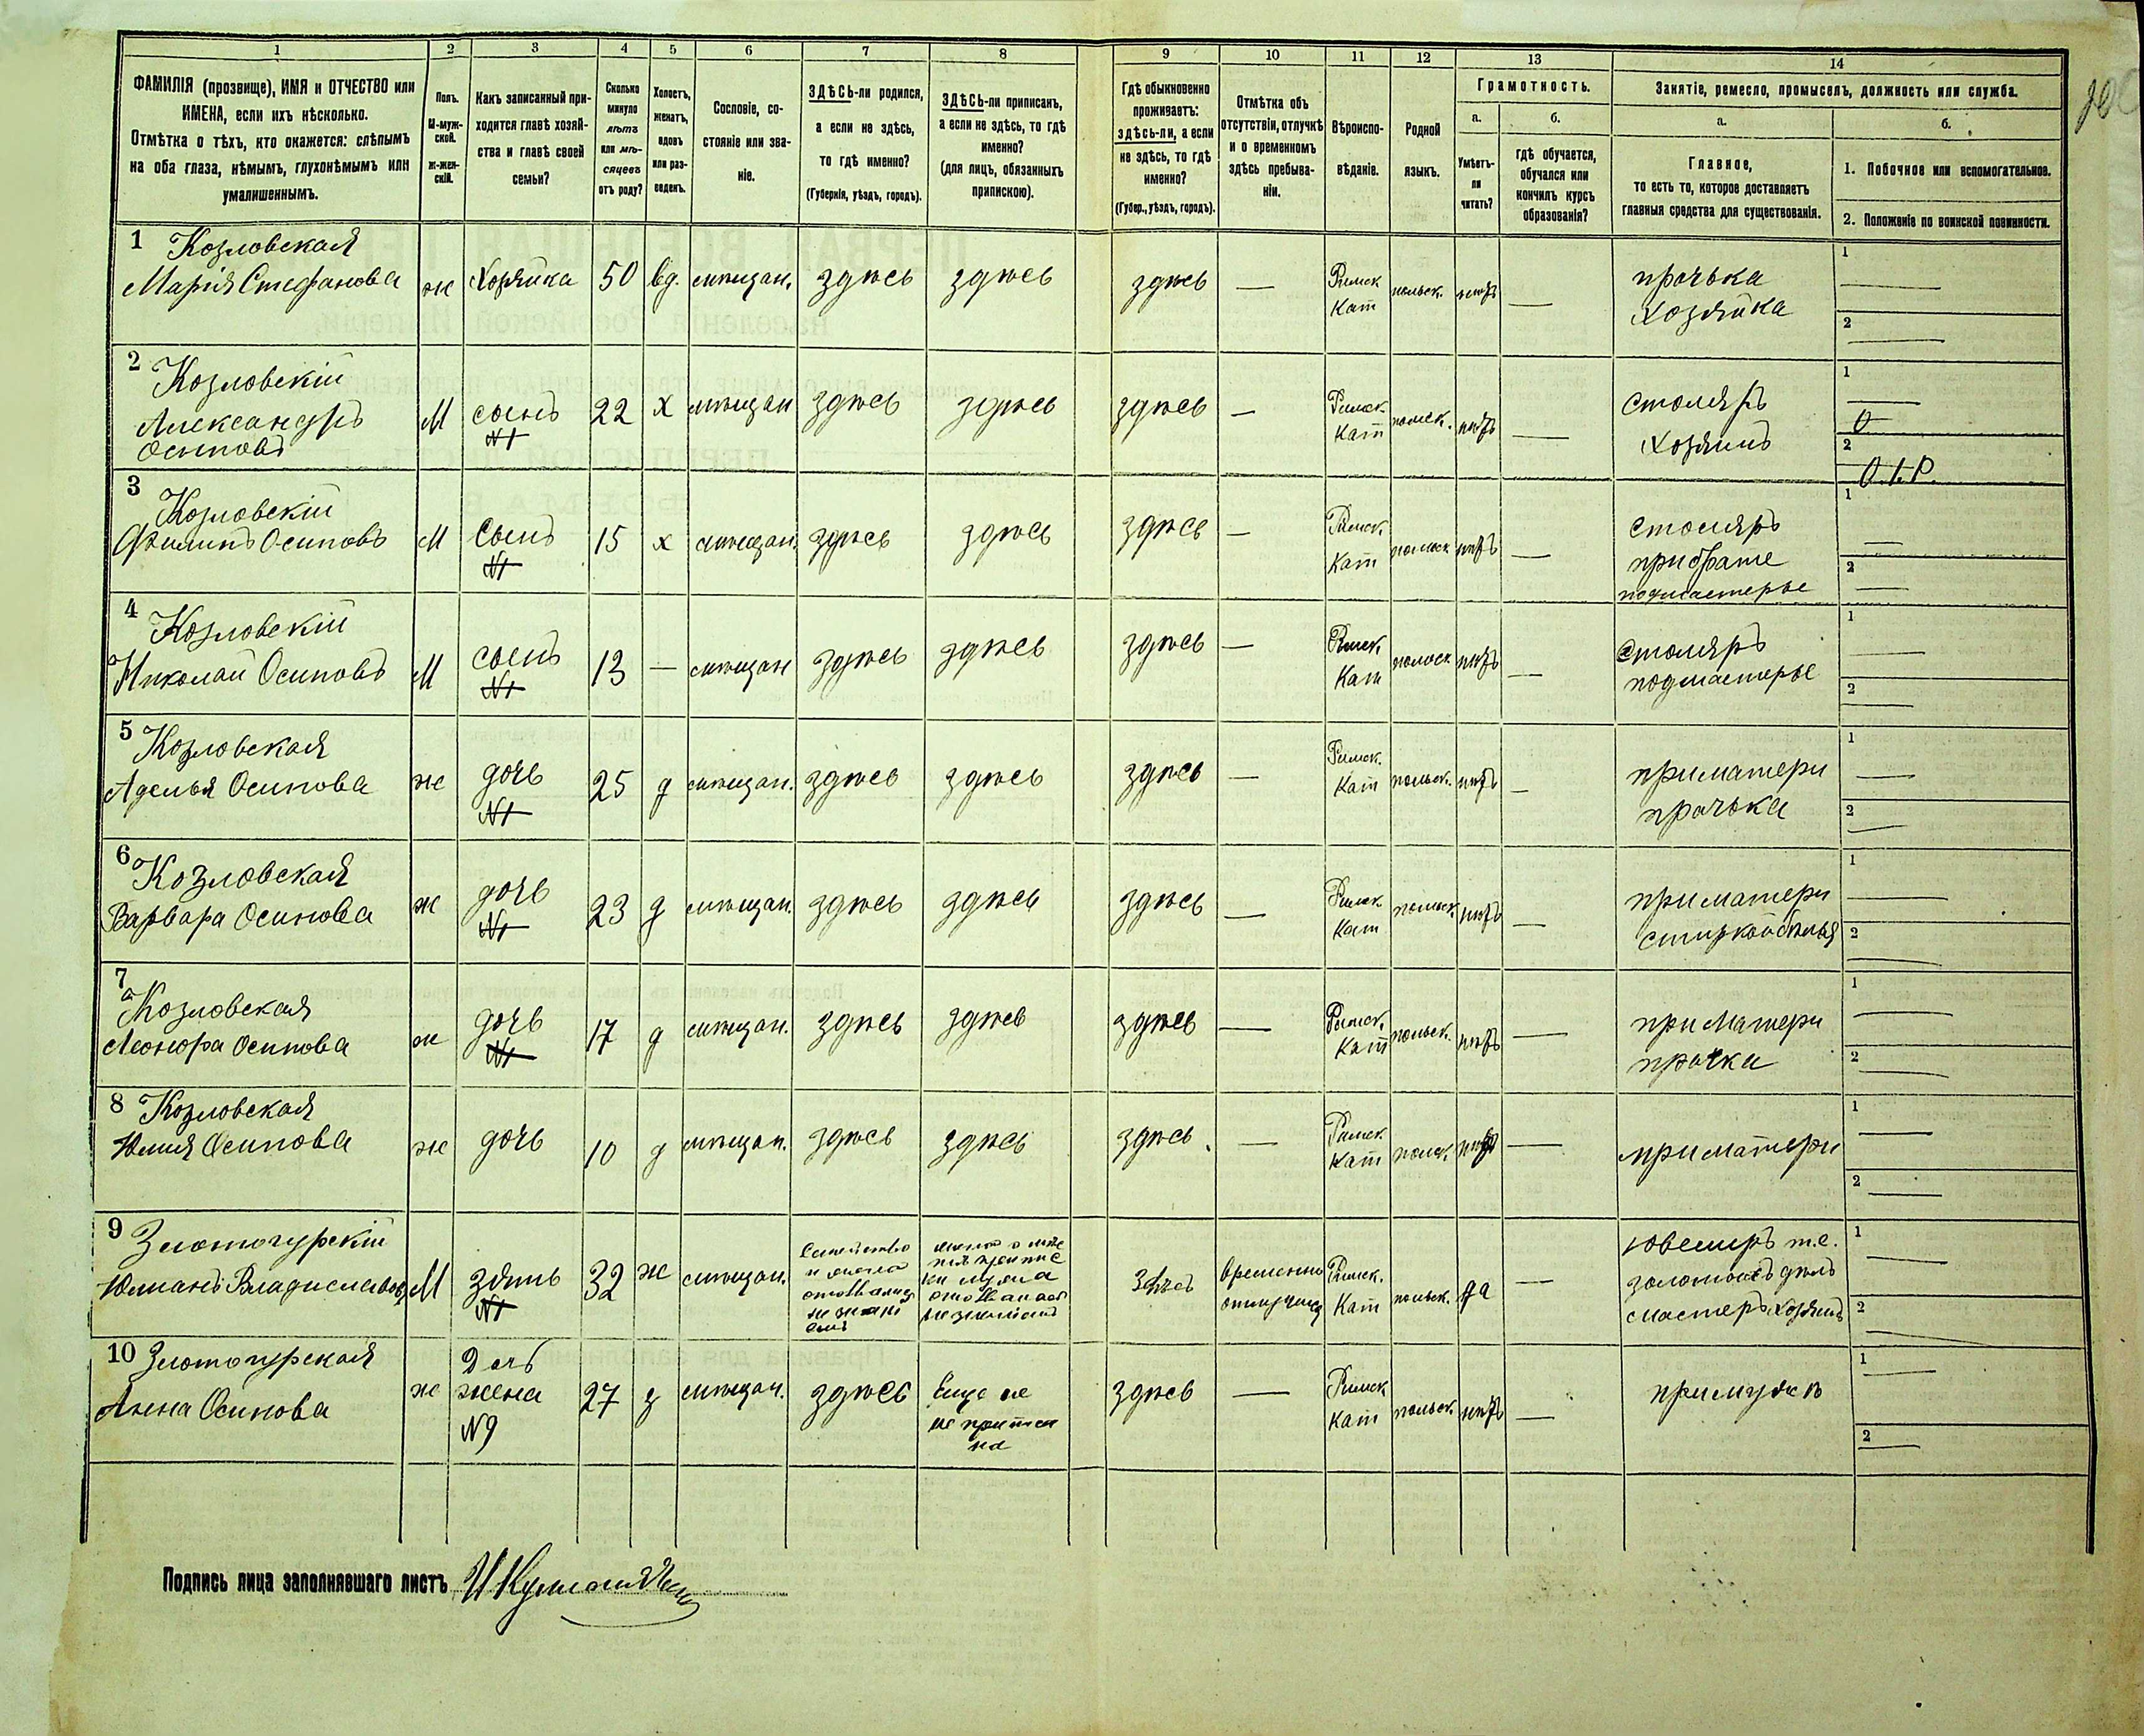 1 2 3 4 5 6 7 8 9 10 11 12 13 14
ФАМИЛІЯ (прозвище), ИМЯ и ОТЧЕСТВО или
ИМЕНА, если ихъ нѣсколько.
Отмѣтка о тѣхъ, кто окажется: слѣпымъ
на оба глаза, нѣмымъ, глухонѣмымъ или
умалишеннымъ.
Полъ.
М-муж-
ской.
ж-жен-
скій.
Какъ записанный при-
ходится главѣ хозяй-
ства и главѣ своей
семьи?
Сколько
минуло
лѣтъ
или мѣ-
сяцевъ
отъ роду?
Холостъ,
женатъ,
вдовъ
или раз-
веденъ.
Сословіе, со-
стояніе или зва-
ніе.
ЗДѢСЬ-ли родился,
а если не здѣсь,
то гдѣ именно?
(Губернія, уѣздъ, городъ).
ЗДѢСЬ-ли приписанъ,
а если не здѣсь, то гдѣ
именно?
(для лицъ, обязанныхъ
припискою).
Гдѣ обыкновенно
проживаетъ:
здѣсь-ли, а если
не здѣсь, то гдѣ
именно?
(Губер., уѣздъ, городъ).
Отмѣтка объ
отсутствіи, отлучкѣ
и о временномъ
здѣсь пребыва-
ніи.
Вѣроиспо-
вѣданіе.
Родной
языкъ.
Грамотность.
а.
Умѣетъ-
ли
читать?
б.
гдѣ обучается,
обучался или
кончилъ курсъ
образованія?
Занятіе, ремесло, промыселъ, должность или служба.
а.
Главное,
то есть то, которое доставляетъ
главныя средства для существованія.
б.
1. Побочное или вспомогательное.
2. Положеніе по воинской повинности.
1 Козловская
Марія Стефанова
ж
Хозяйка
50
вд.
мѣщан.
здѣсь
здѣсь
здѣсь
—
Римск
Кат
польск.
нѣтъ
—
прачька
Хозяйка
1
—
2
—
2 Козловскій
Александръ
Осиповъ
М
сынъ
N1
22
х
мѣщан
здѣсь
здѣсь
здѣсь
—
Римск
Кат
польск.
нѣтъ
—
столяръ
хозяинъ
1
—
2
3 Козловскій
Филипъ Осиповъ
М
Сынъ
N1
15
х
мѣщан.
здѣсь
здѣсь
здѣсь
—
Римск.
Кат
польск
нѣтъ
—
столяръ
при брате
подмастерье
1
—
2
—
4 Козловскій
Николай Осиповъ
М
сынъ
N1
13
—
мѣщан
здѣсь
здѣсь
здѣсь
—
Римск.
Кат
польск
нѣтъ
—
столяръ
подмастерье
1
—
2
—
5 Козловская
Аделья Осипова
ж
дочь
N1
25
д
мѣщан.
здѣсь
здѣсь
здѣсь
—
Римск.
Кат
польск.
нѣтъ
—
при матери
прачька
1
—
2
—
6 Козловская
Варвара Осипова
ж
дочь
N1
23
д
мѣщан.
здѣсь
здѣсь
здѣсь
—
Римск
Кат
польск.
нѣтъ
—
при матери
стиркой бѣлья
1
—
2
—
7 Козловская
Леонора Осипова
ж
дочь
N1
17
д
мѣщан.
здѣсь
здѣсь
здѣсь
—
Римск.
Кат
польск.
нѣтъ
—
при Матери
прачка
1
—
2
—
8 Козловская
Юлия Осипова
ж
дочь
10
д
мѣщан.
здѣсь
здѣсь
здѣсь.
—
Римск
Кат
польск.
нѣтъ
—
при матери
1
—
2
—
9 Злотогурскій
Юлианъ Владиславовъ
М
зять
N1
32
ж
мѣщан.
здѣсь
временно
отлучился
Римск.
Кат
польск.
да
—
Ювелиръ т.е.
золотыхъ дѣлъ
мастеръ хозяинъ
1
—
2
—
10 Злотогурская
Анна Осипова
ж
Дочь
жена
N9
27
з
мѣщан.
здѣсь
Еще не
не приписа
на
здѣсь
—
Римск
Кат
польск.
нѣтъ
—
при мужѣ
1
—
2
—
Подпись лица заполнявшаго листъ